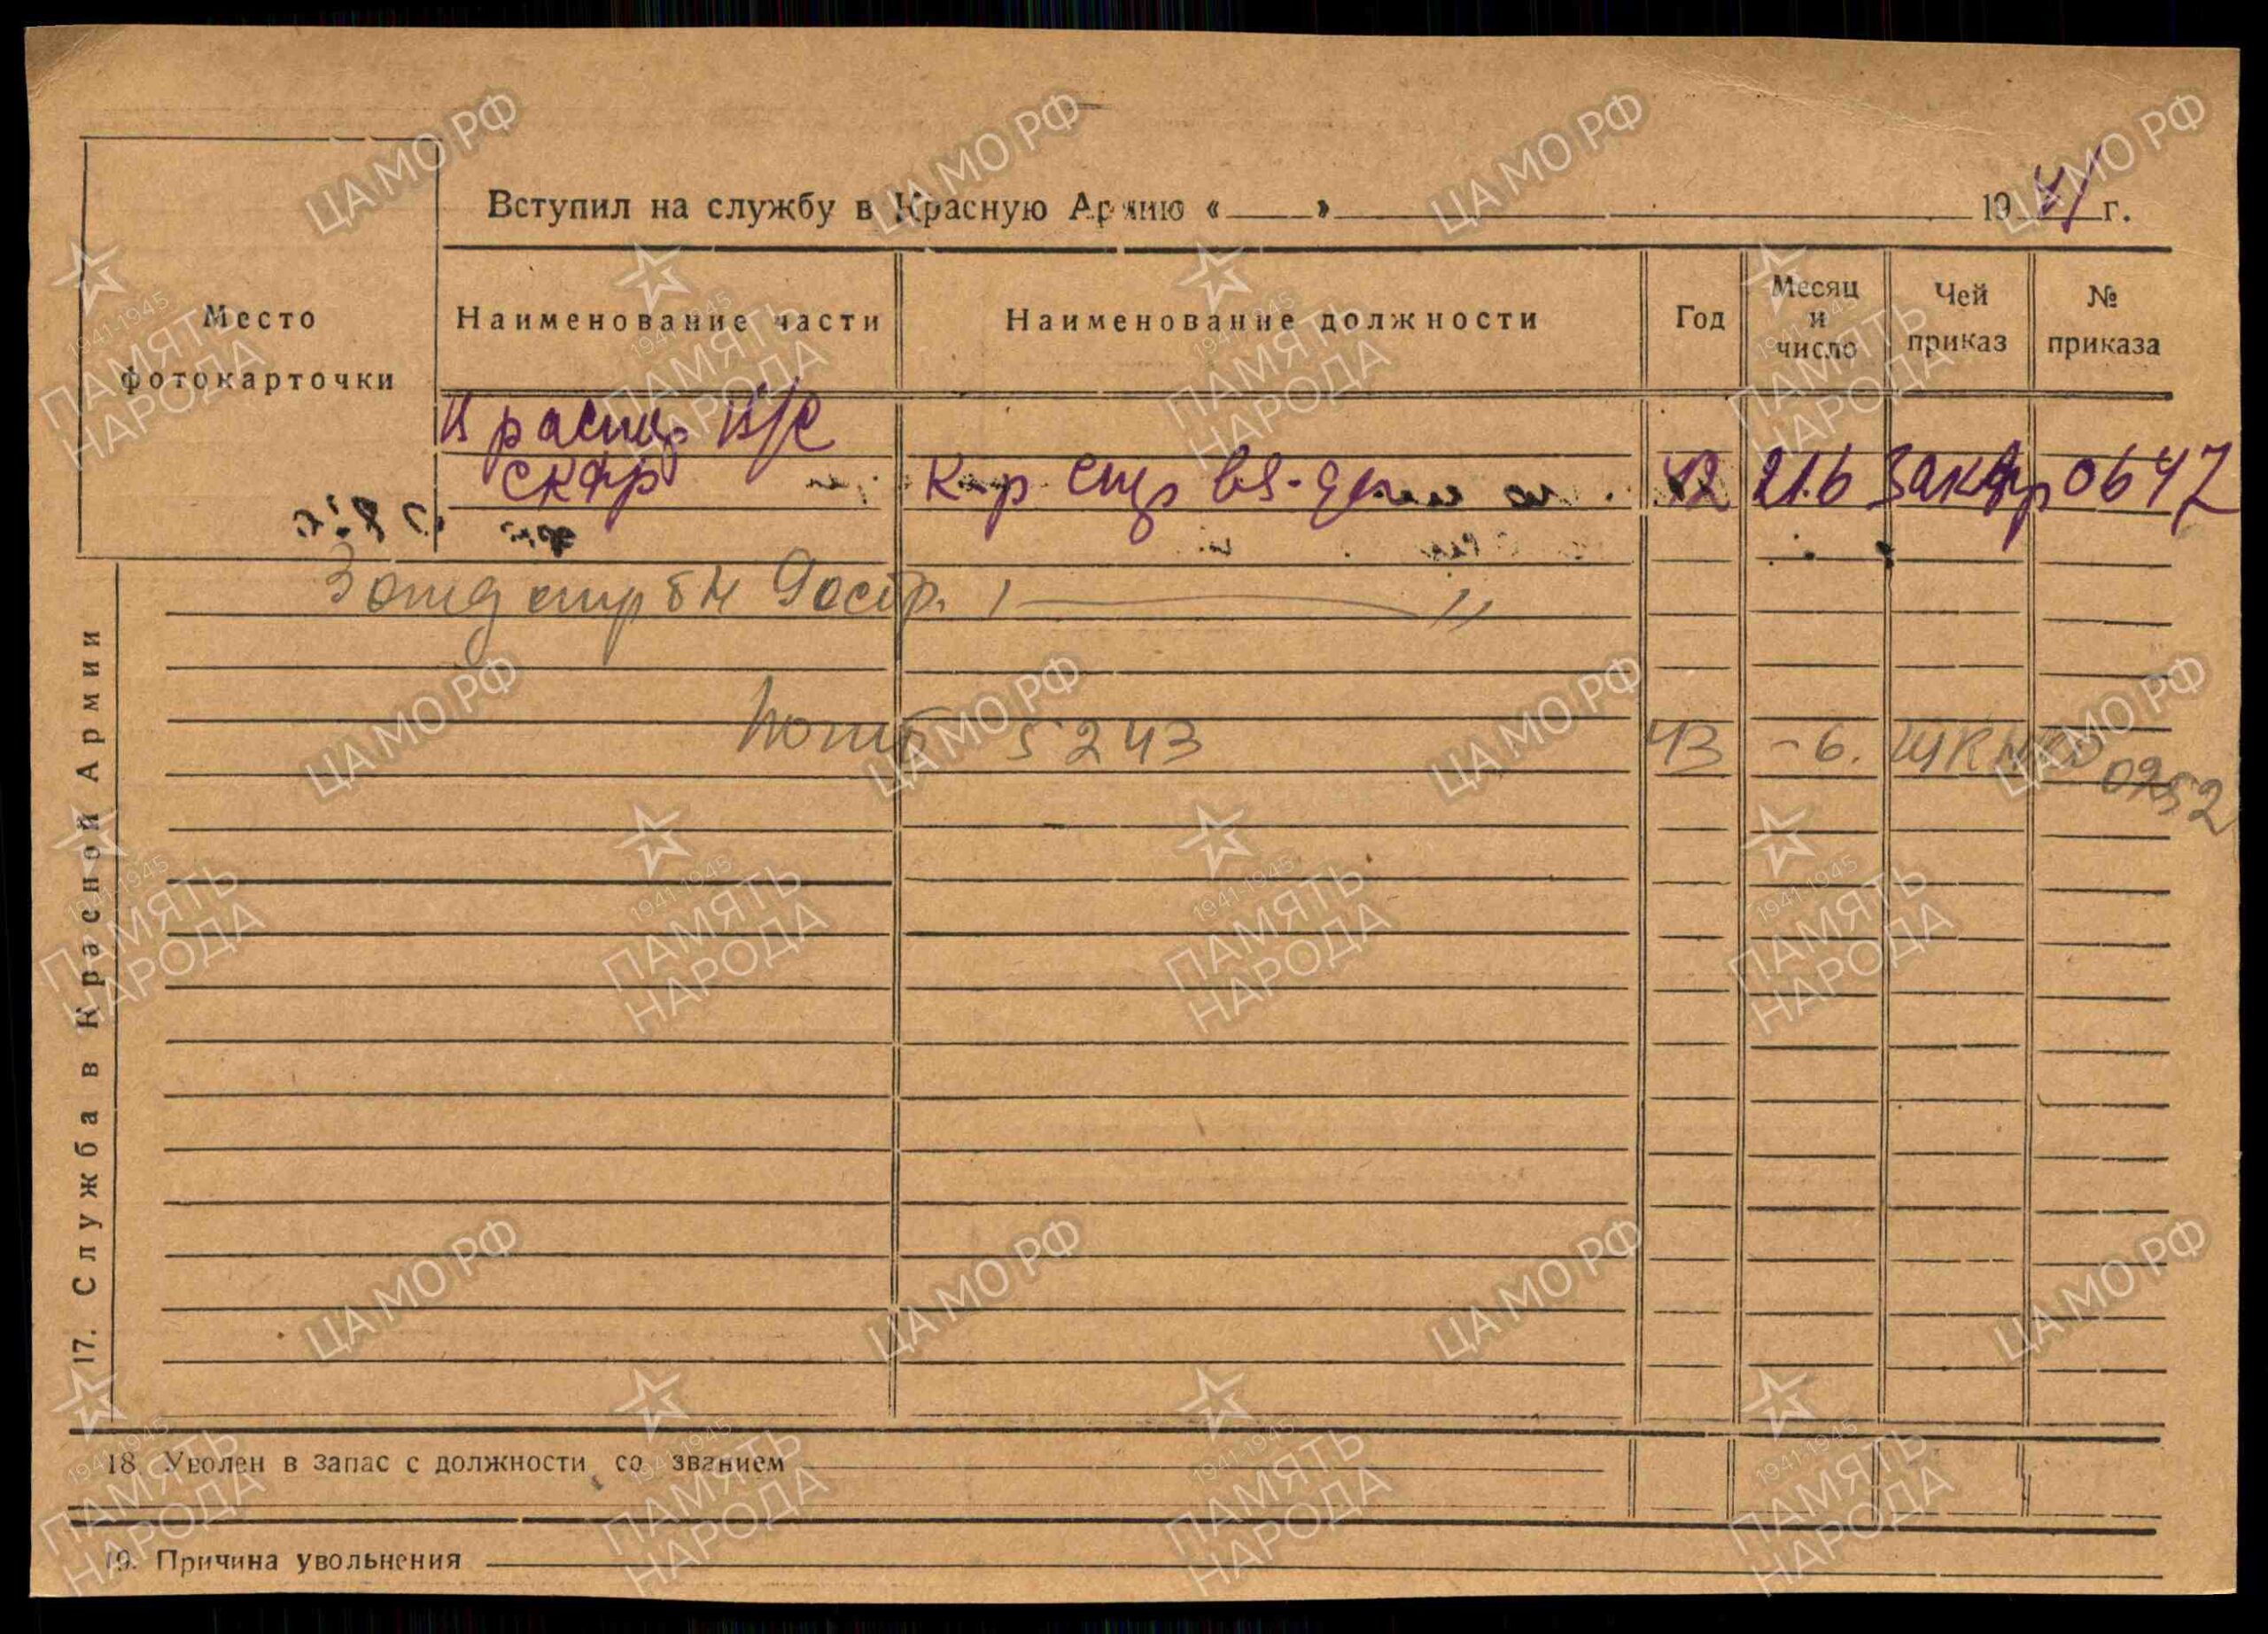 Вступил на службу в Красную Армию « » 1941 г.
Место фотокарточки
Наименование части
Наименование должности
Год
Месяц и число
Чей приказ
№ приказа
СКФр
К-р стр вз-да 42 21.6 ЗакФр 0647
3 отд стр бн 9 остр. 〃
Погиб 5 2 43 43 -6. 0252
17. Служба в Красной Армии
18. Уволен в запас с должности со званием
19. Причина увольнения
ЦАМО РФ
1941-1945
ПАМЯТЬ
НАРОДА